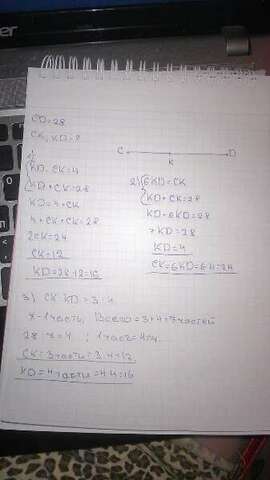 CD=28
CK, KD=?
C K D
1)
KD-CK=4
KD+CK=28
KD=4+CK
4+CK+CK=28
2CK=24
CK=12
KD=28-12=16
2) 6KD=CK
KD+CK=28
KD+6KD=28
7KD=28
KD=4
CK=6KD=6·4=24
3) CK:KD=3:4
x-1 часть, Всего=3+4=7 частей
28:7=4 ; 1 часть=4
CK=3 части=3·4=12
KD=4 части=4·4=16